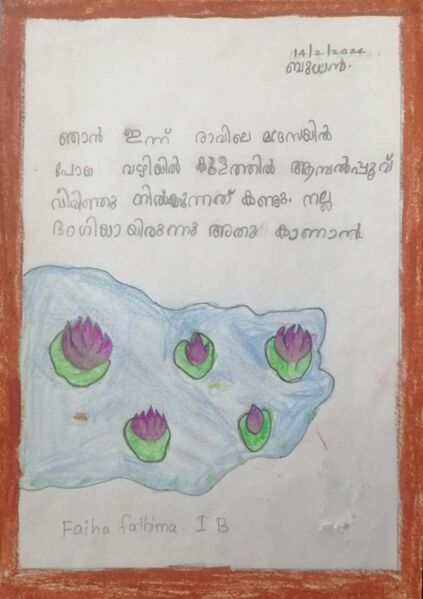 14/2/2024
ബുധൻ.
ഞാൻ ഇന്ന് രാവിലെ മദ്രസയിൽ
പോയ വഴിയിൽ കുളത്തിൽ ആമ്പൽപ്പൂവ്
വിരിഞ്ഞു നിൽക്കുന്നത് കണ്ടു. നല്ല
ഭംഗിയായിരുന്നു അതു കാണാൻ.
Faiha fathima I B